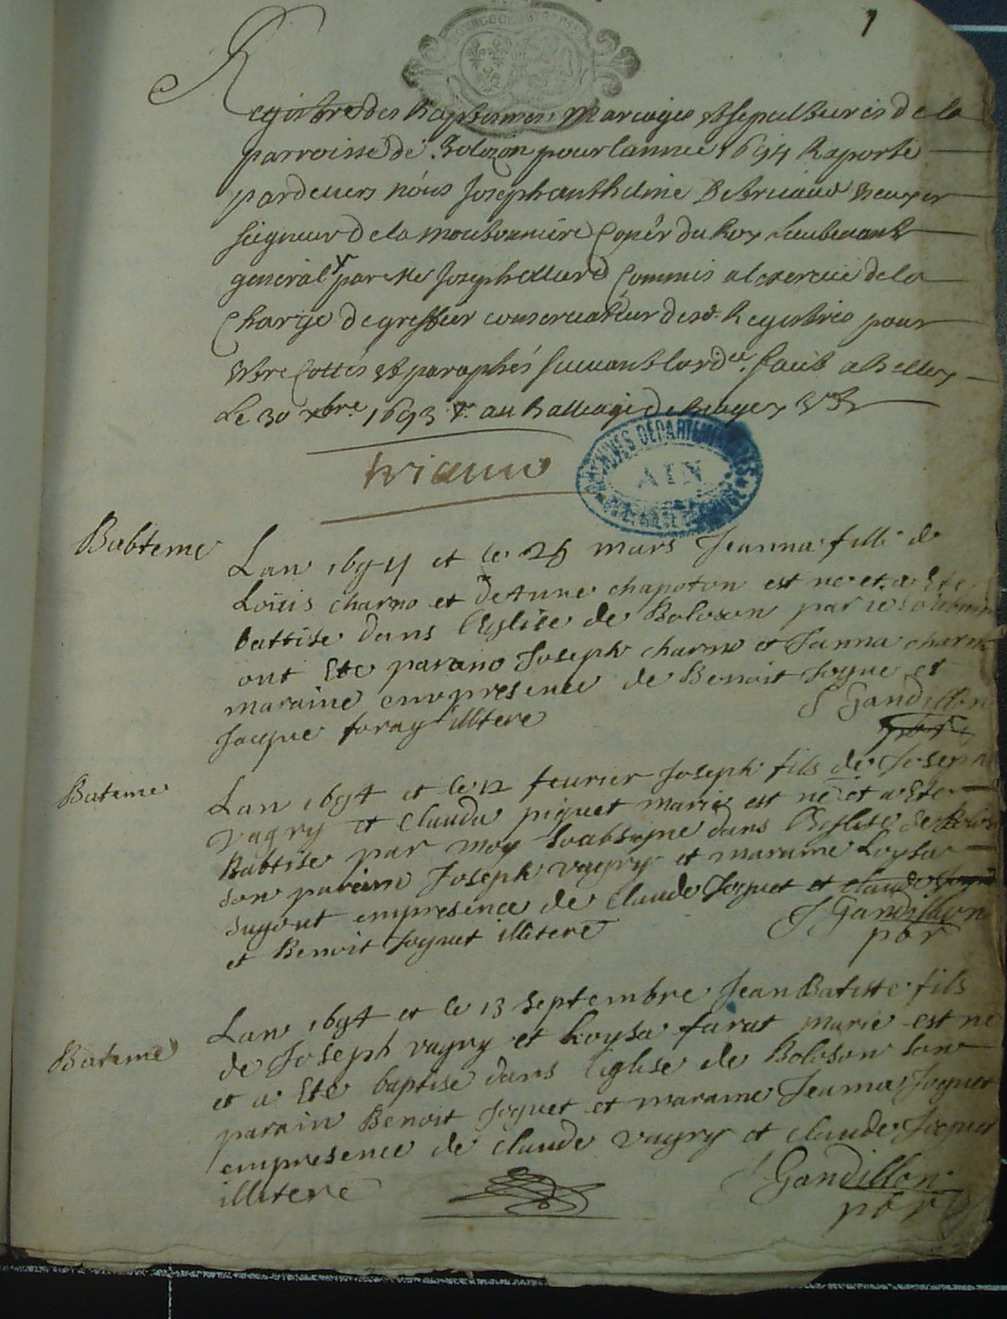 1
Registre des Baptesmes Mariages et sepultures de la
parroisse de Bolozon pour lannee 1694 Raporté
pardevers nous Joseph anthelme
seigneur de la moutonniere Coner du Roy Lieutenant
general par Me Joseph Commis a lexercice de la
Charge de greffier conservateur desd. Registres pour
Estre Cottés et paraphés suivant lord.ce faict a Belley
Le 30 xbre 1693 au Balliage de Bugey
ARCHIVES DEPARTEMENTALES
AIN
Babteme
Lan 1694 et le 28 mars Jeanna fille de
Loüis charno et de Anne chapoton est ne et a Ete
battise dans lEglise de Boloson par
ont Ete parano Joseph charno et Janna charno
maraine en presence de Benoit Joguet et
Jacque foray illitere
J Gandillon
Bateme
Lan 1694 et le 12 feurier Joseph fils de Joseph
vagry et Claudu piquet marie est ne et a Ete
Babtise par moy soubsigne dans lEglise de Bolo
son parain Joseph vagry et maraine Loysa
sugout empresence de Claude Joguet et claude
et Benoit Joguet illitere
J Gandillon
pbr
Bateme
Lan 1694 et le 13 septembre Jean Batiste fils
de Joseph vagry et Loysa farat marie est ne
et a Ete baptise dans l'Eglise de Boloson son
parain Benoit Joguet et maraine Jeanna Joguet
empresence de Claude vagry et claude Joguet
illitere
J Gandillon
pbr